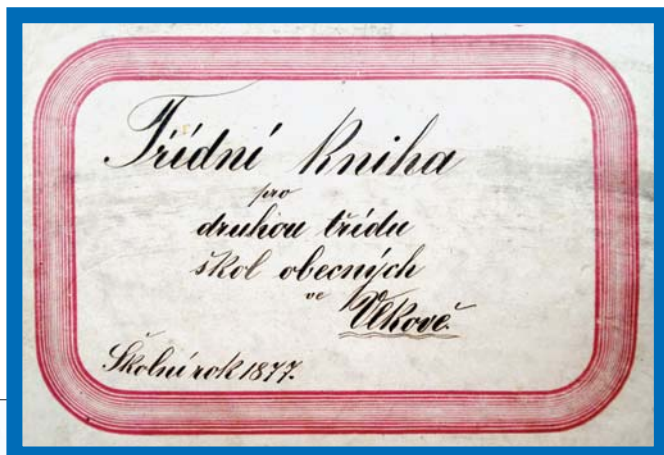 Třídní kniha
pro
druhou třídu
škol obecných
ve Vlkově.
Školní rok 1877.